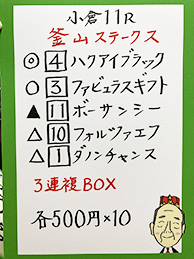 小倉11R
釜山ステークス
◎ 4 ハクアイブラック
○ 3 ファビュラスギフト
▲ 11 ボーサンシー
△ 10 フォルツァエフ
△ 1 ダノンチャンス
3連複BOX
各500円×10